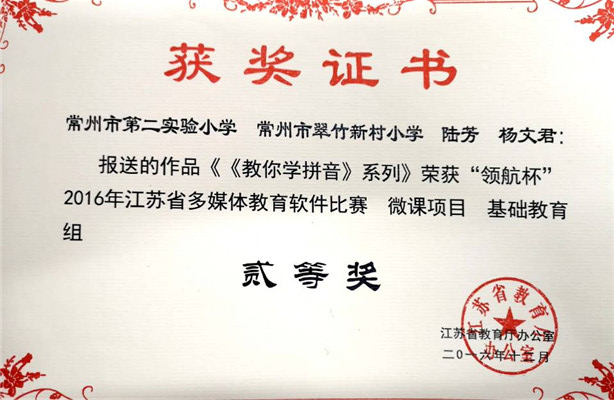 获奖证书
常州市第二实验小学 常州市翠竹新村小学 陆芳 杨文君：
报送的作品《《教你学拼音》系列》荣获“领航杯”
2016年江苏省多媒体教育软件比赛 微课项目 基础教育
组
贰等奖
江苏省教育厅办公室
江苏省教育厅办公室
二〇一六年十二月